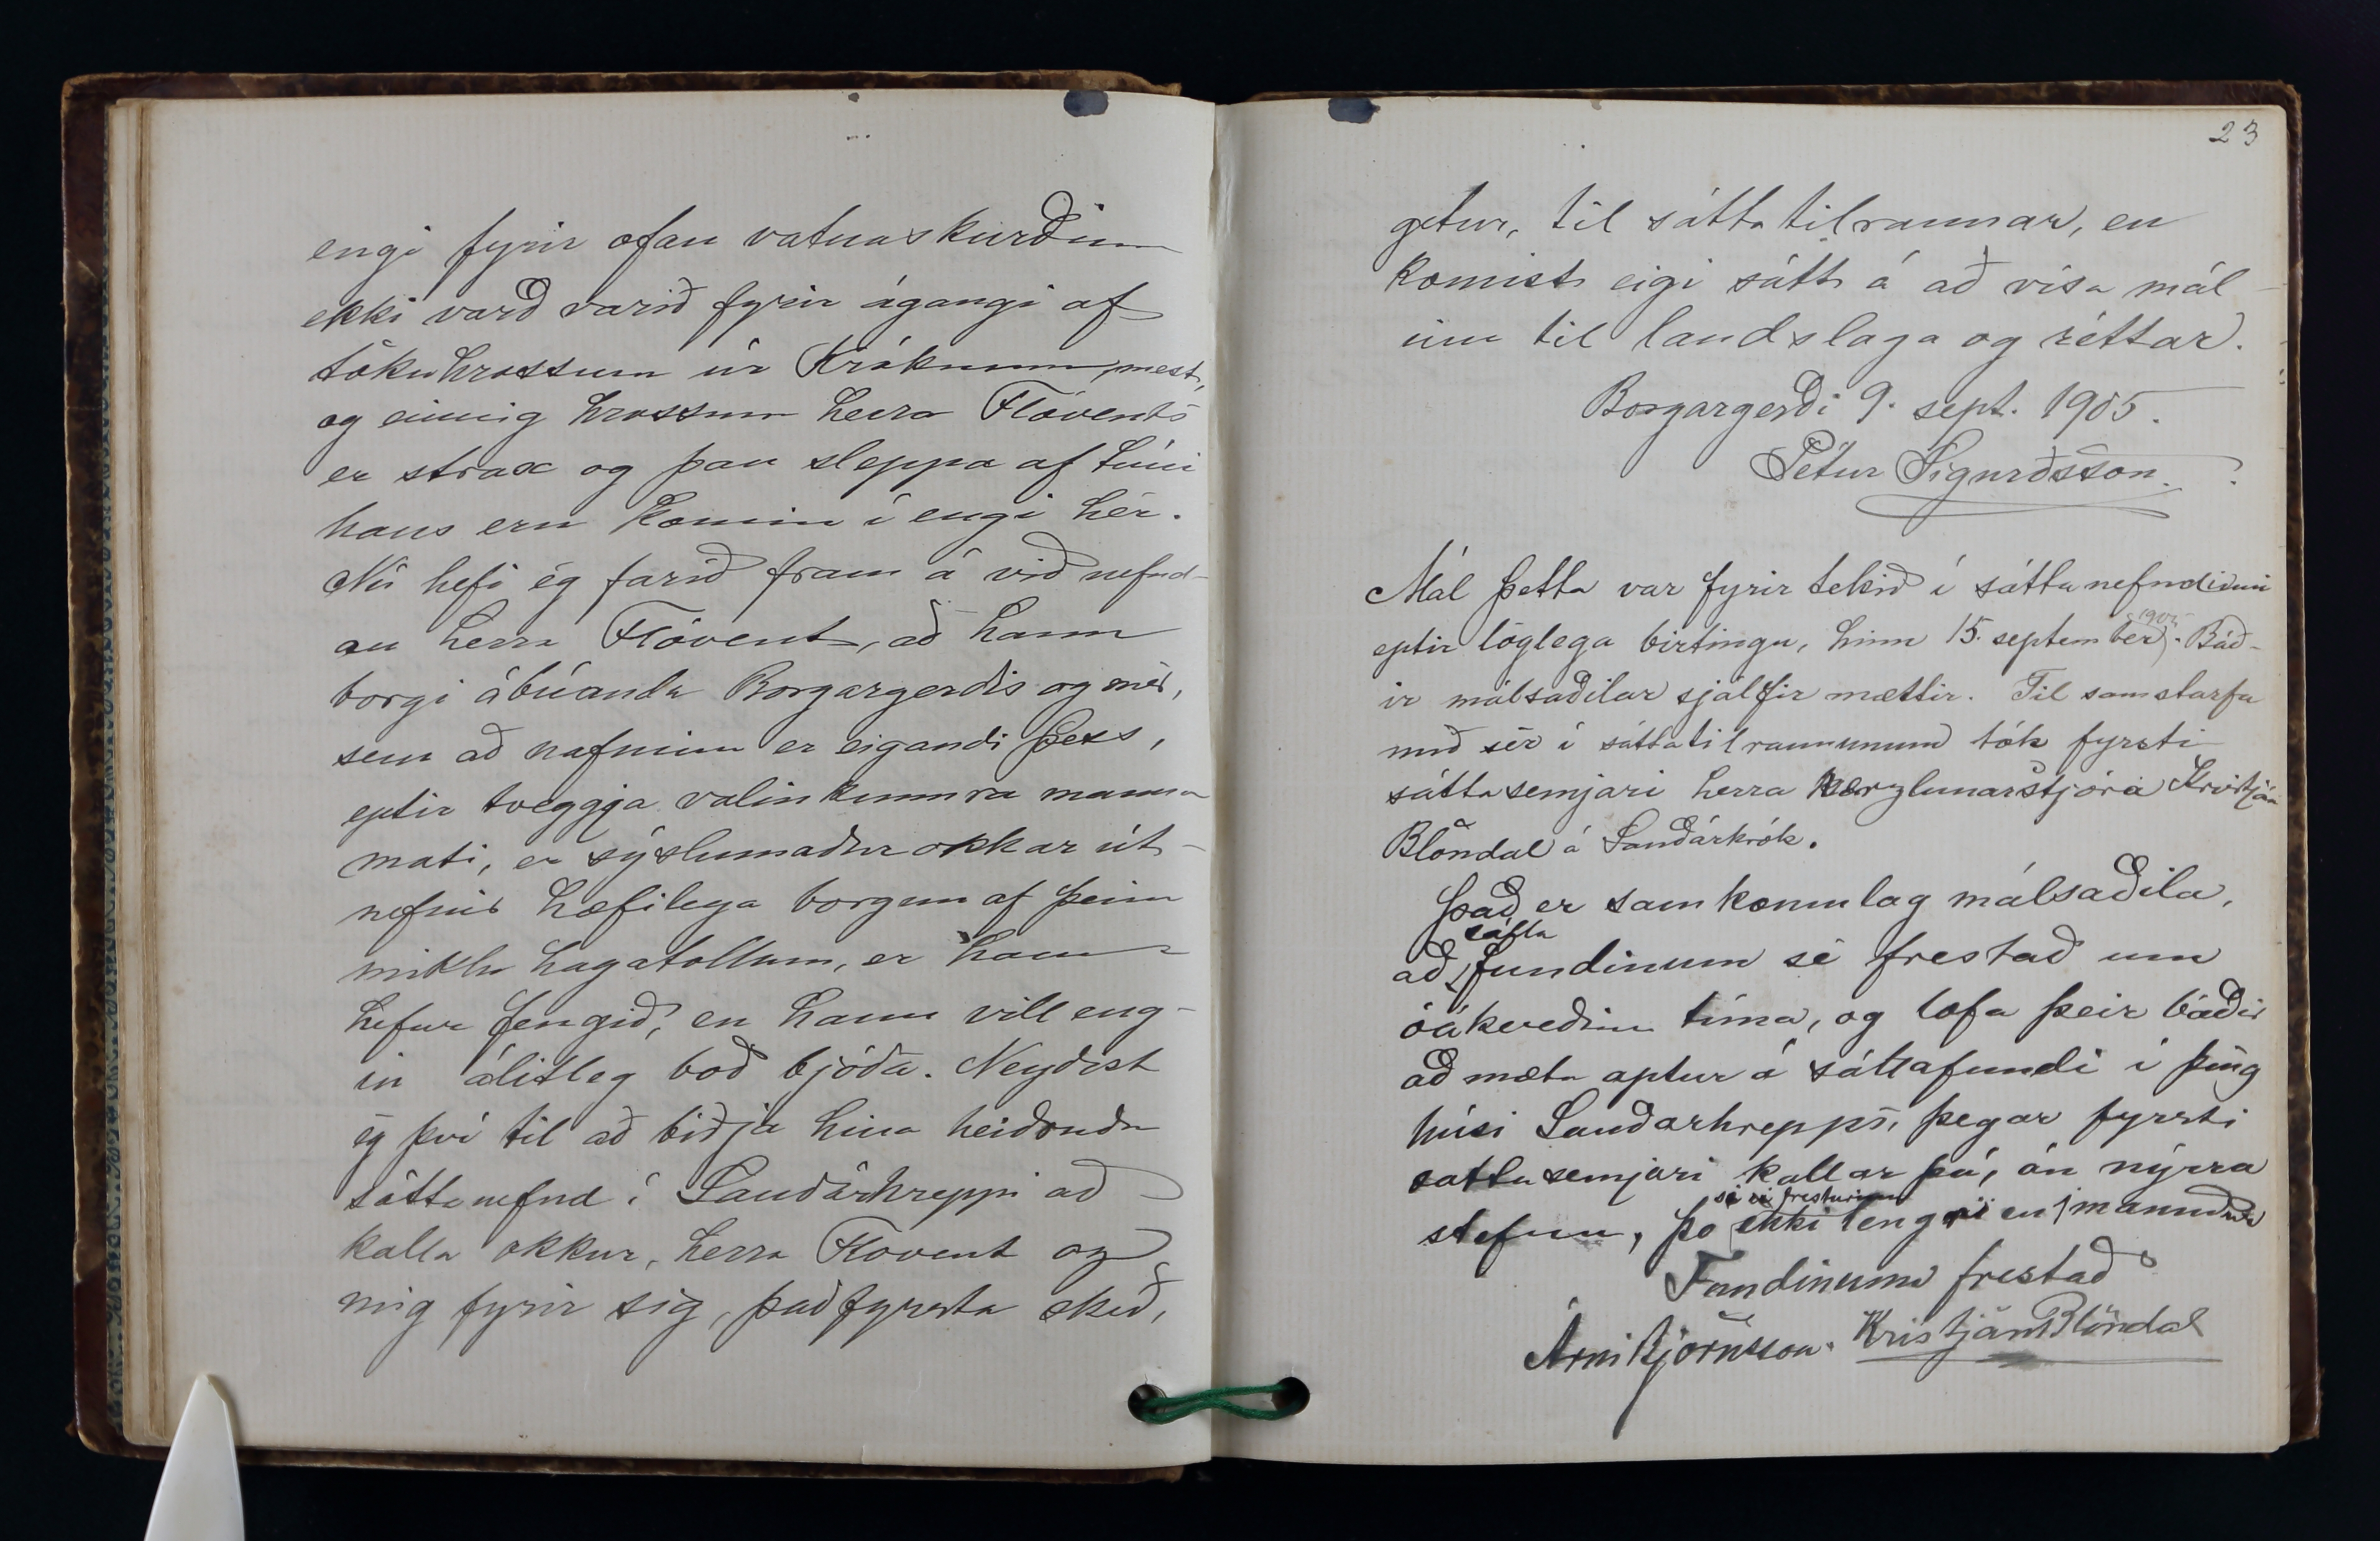 engi fyrir ofan vatnaskurðinn
ekki varð varið fyrir ágangi af
tökuhrossum úr Króknum, mest,
og einnig hrossum herra Flóvents
er strax og þau sleppa af túni
hans eru komin í engi hér.
Nú hefi ég farið fram á við nefnd-
an herra Flóvent, að hann
borgi ábúanda Borgargerðis og mér,
sem að nafninu er eigandi þess,
eptir tveggja valinkunnra manna
mati, er sýslumaður okkar út-
nefnir hæfilega borgun af þeim
miklu hagatollum, er hann
hefur fengið, en hann vill eng-
in álitleg boð bjóða. Neyðist
ég því til að biðja hina heiðruðu
sáttanefnd í Sauðárhreppi að
kalla okkur, herra Flovent og
mig fyrir sig, það fyrsta skeð,
23
getur, til sáttatilraunar, en
komist eigi sátt á að vísa mál-
inu til landslaga og réttar.
Borgargerði 9. sept. 1905.
Pétur Sigurðsson.
Mál þetta var fyrir tekið í sáttanefndinni
1905
eptir löglega birtingu, hinn 15. september. Báð-
ir málsaðilar sjálfir mættir. Til samstarfa
með sér í sáttatilraununum tók fyrsti
sáttasemjari herra verzlunarstjóra Kristján
Blöndal á Sauðárkrók.
Það er samkomulag málsaðila,
sátta
að fundinum sé frestað um
óákveðinn tíma, og lofa þeir báðir
að mæta aptur á sáttafundi í þing
húsi Sauðarhrepps, þegar fyrsti
sattasemjari kallar þá, án nýrra
sé fresturinn
stefnu, þo ekki lengri en 1 mánuður
Fundinum frestað
Árni Björnsson. Kristján Blöndal